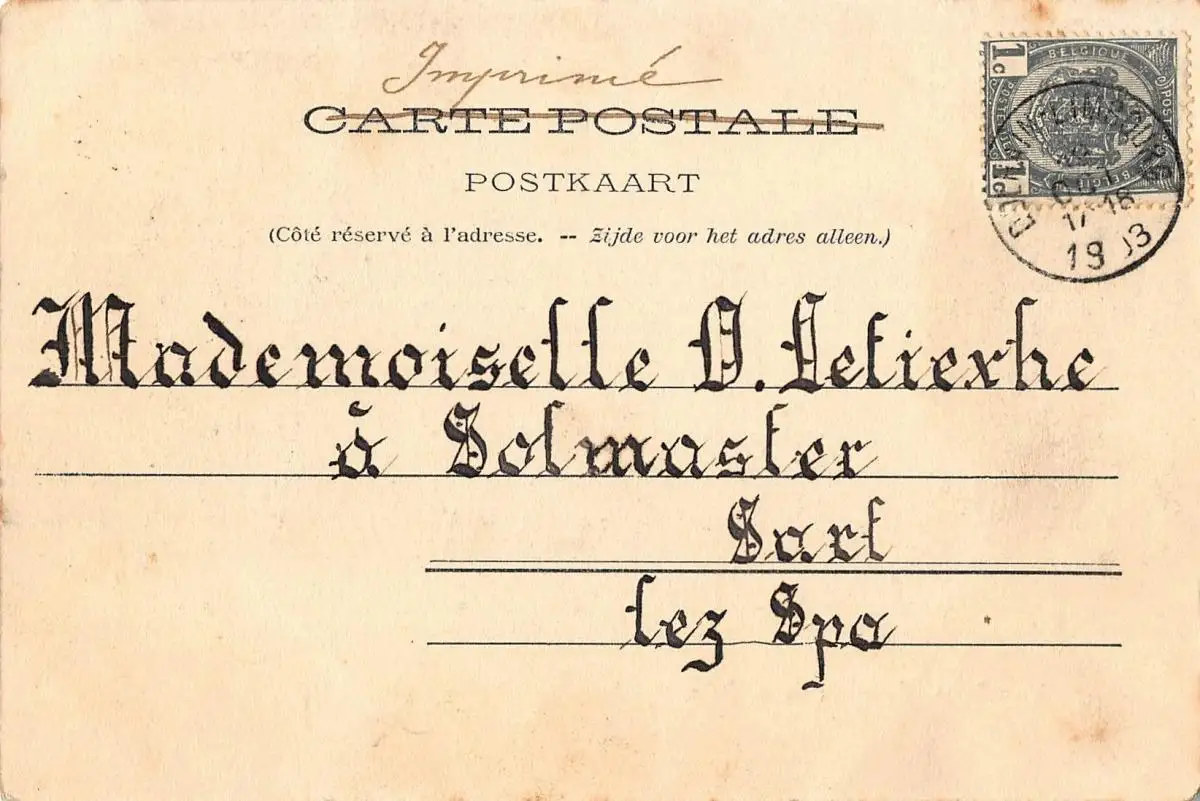 Imprimé
CARTE POSTALE
POSTKAART
(Côté réservé à l'adresse. -- Zijde voor het adres alleen.)
1c
BELGIQUE
1c
17-18
1903
Mademoiselle O. Letierxhe
à Solmaster
Sart
lez Spa